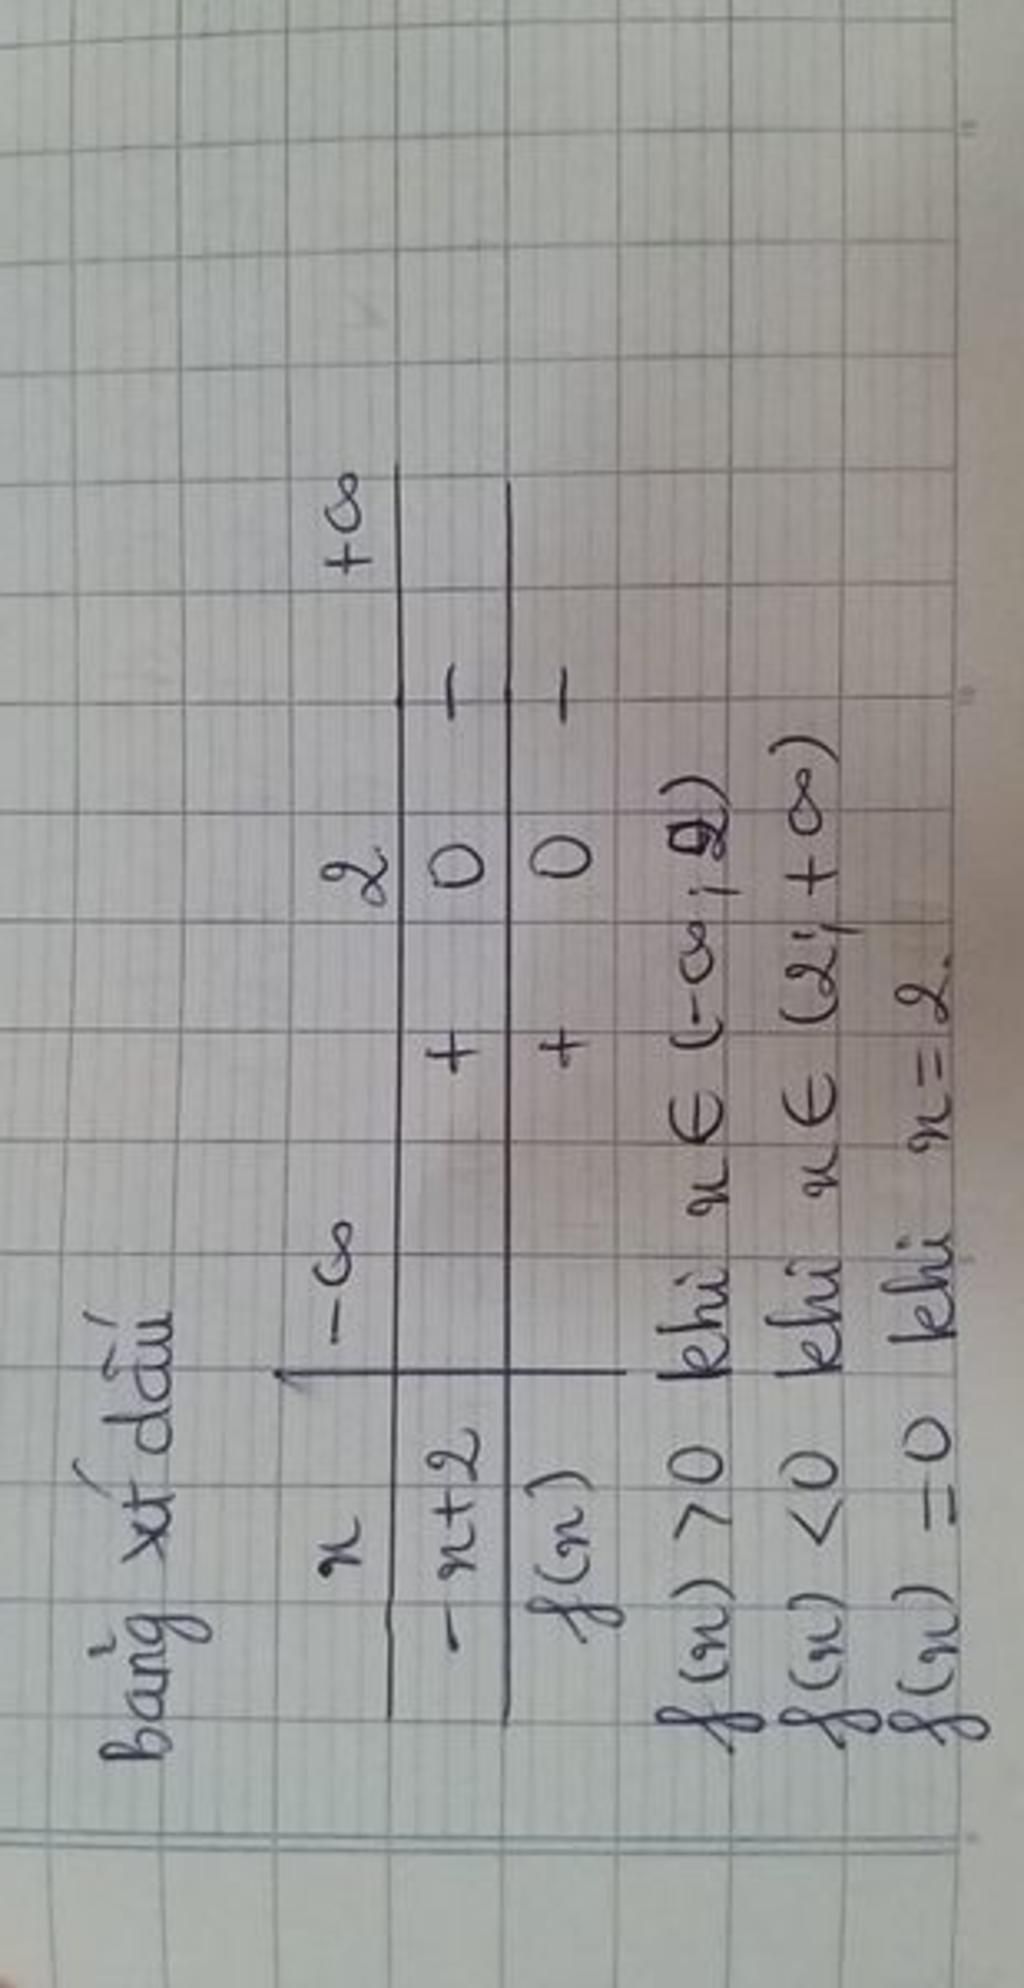 Bảng xét dấu
x -∞ 2 +∞
-x+2 + 0 -
f(x) + 0 -
f(x) >0 khi x ∈ (-∞; 2)
f(x) <0 khi x ∈ (2; +∞)
f(x) =0 khi x=2.